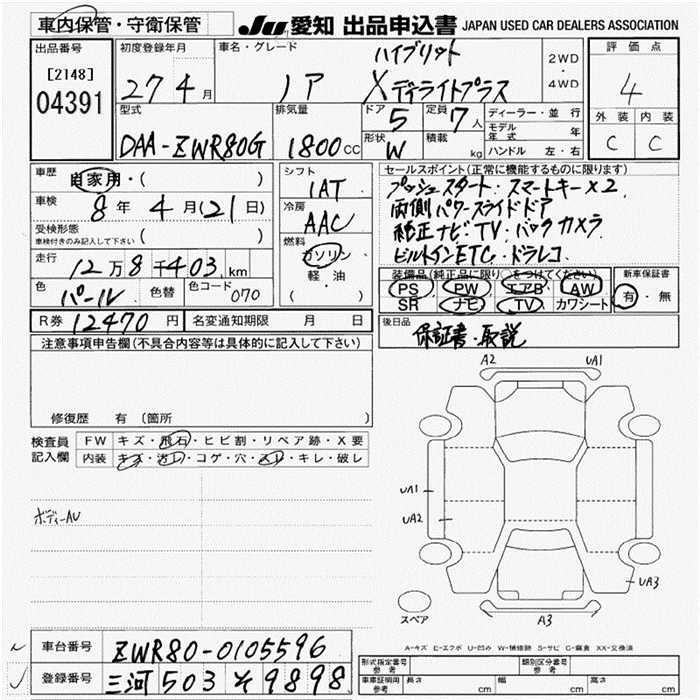 車内保管・守衛保管
JU 愛知 出品申込書 JAPAN USED CAR DEALERS ASSOCIATION
出品番号
[2148]
04391
初度登録年月
27 4 月
車名・グレード
ノア
ハイブリット
Xディライトプラス
2WD
・
4WD
評価点
4
外装 内装
C C
型式
DAA-ZWR80G
排気量
1800 CC
ドア 5
定員 7 人
形状 W
積載 kg
ディーラー・並行
モデル年式 年
ハンドル 左・右
車歴
自家用・( )
車検
8 年 4 月(21日)
受検形態
車検付きのみ記入して下さい ( )
走行
12万8千403 km
色 パール 色替 色コード 070
シフト
IAT
冷房
AAC
燃料
ガソリン
・
軽・油
( )
セールスポイント(正常に機能するものに限ります)
プッシュスタート・スマートキーX2.
両側パワースライドドア
純正ナビ・TV・バックカメラ
ビルトインETC・ドラレコ
装備品(純正品に限り○をつけてください)
PS PW エアB AW
SR ナビ TV カワシート
新車保証書
有・無
R券 12470 円 名変通知期限 月 日
後日品
保証書・取説
注意事項申告欄(不具合内容等は具体的に記入して下さい)
修復歴 有 (箇所 )
検査員
記入欄
FW キズ・飛石・ヒビ割・リペア跡・X要
内装 キズ・汚レ・コゲ・穴・スレ・キレ・破レ
ボディーAU
A2 UA1
UA1
UA2
UA3
スペア
A3
A-キズ E-エクボ U-凹み W-補修跡 S-サビ C-腐食 XX-交換済
車台番号 ZWR80-0105596
登録番号 三河 503 そ 9898
形式指定番号
参考
類別区分番号
参考
車庫証明用
参考
長さ cm 幅 cm 高さ cm